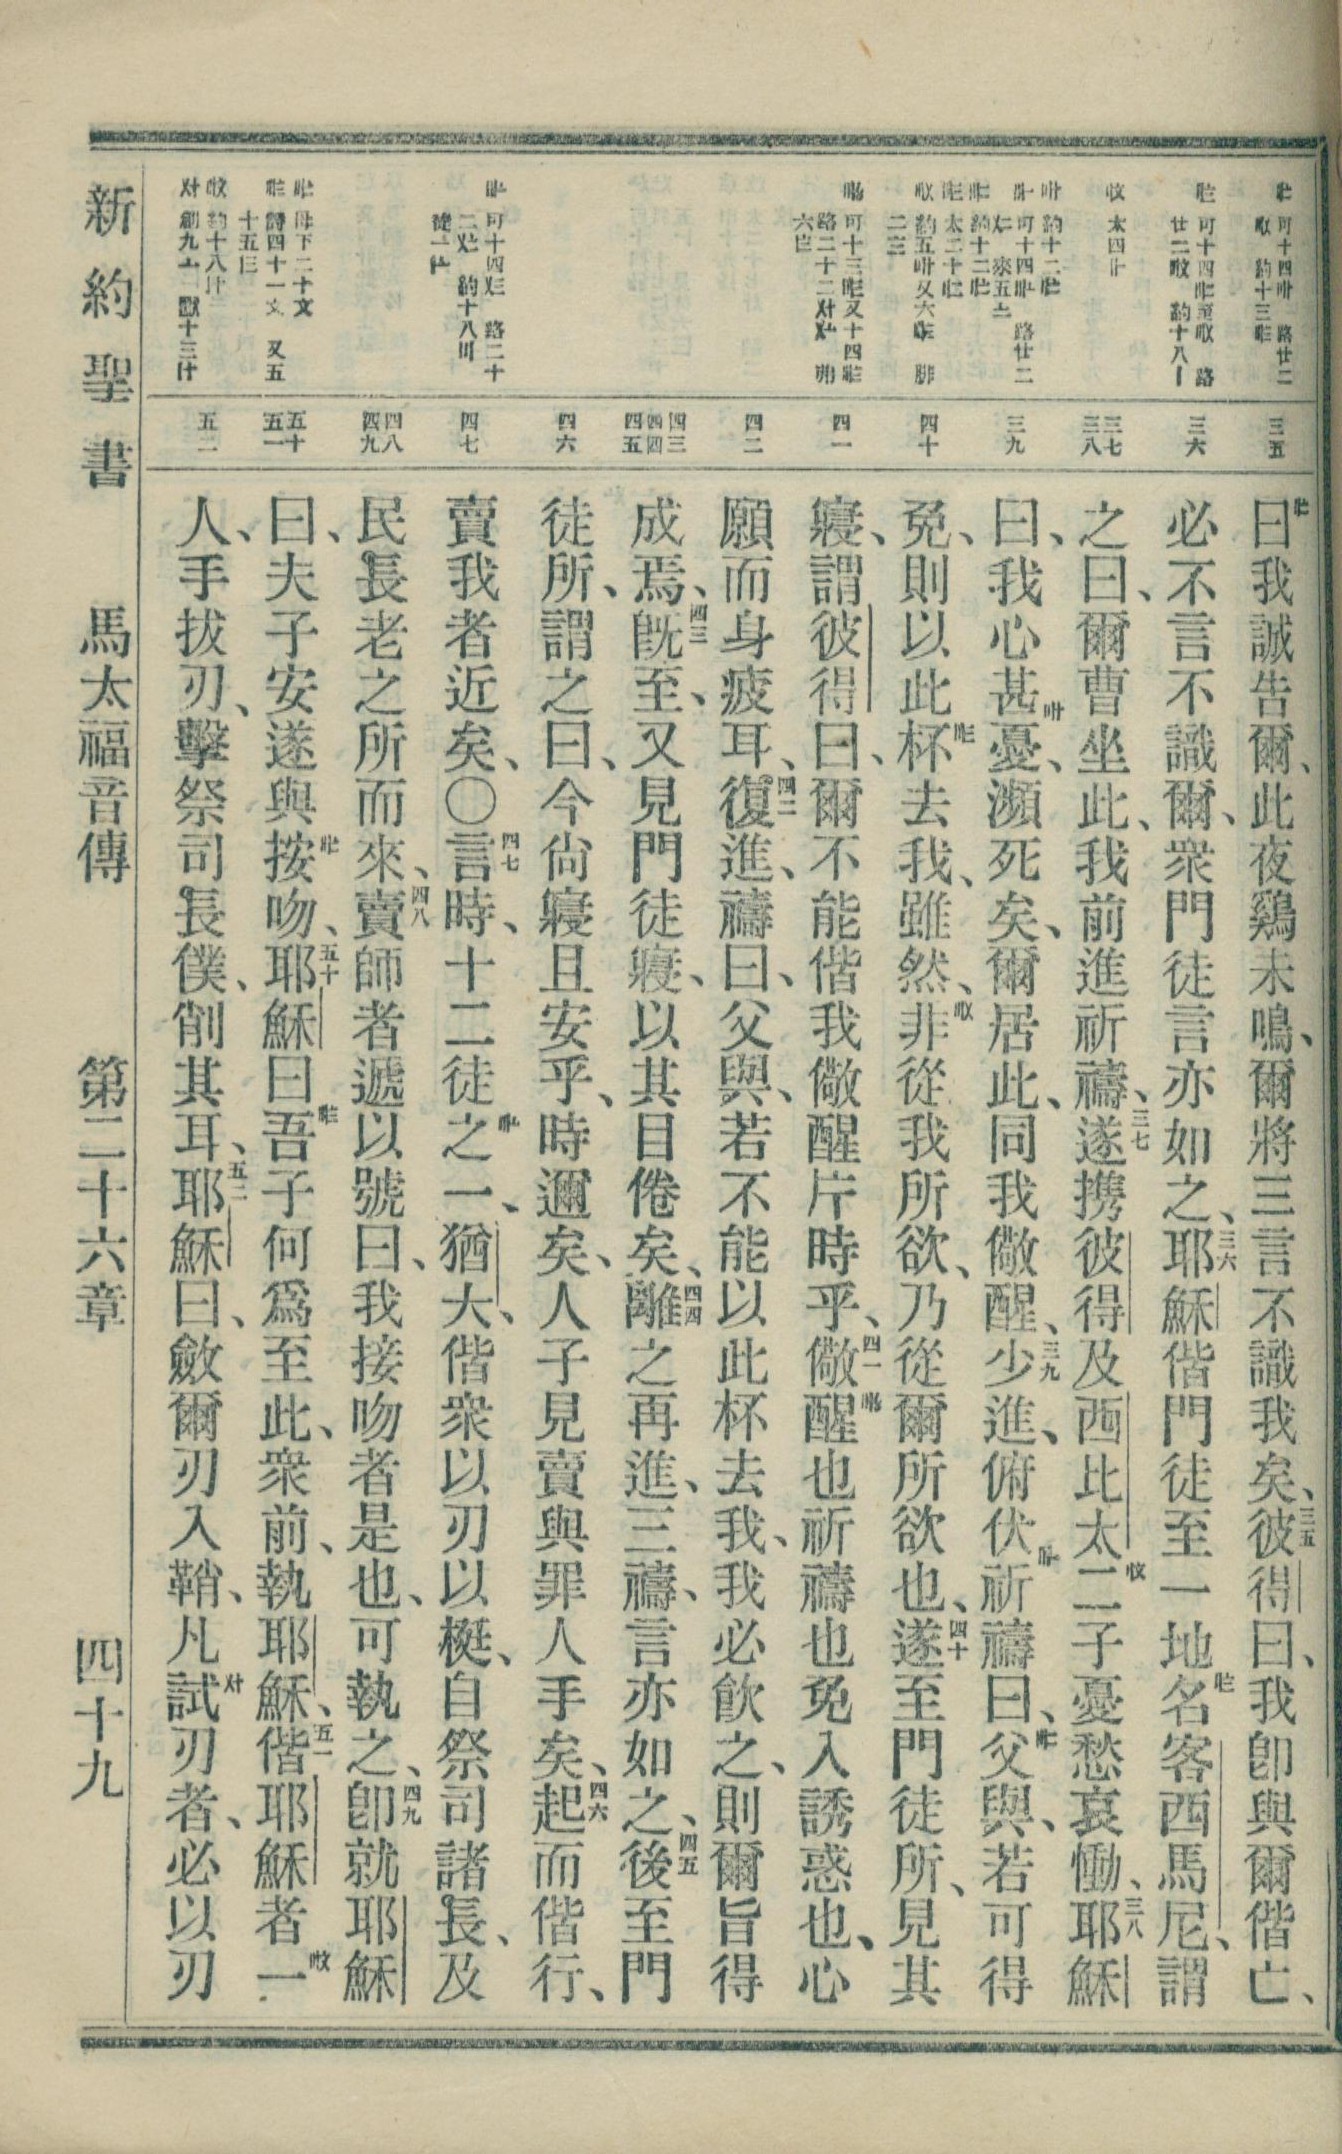 曰我誠告爾、此夜鷄未鳴、爾將三言不識我矣、三五彼得曰、我卽與爾偕亡、
必不言不識爾、衆門徒言亦如之、三六耶穌偕門徒至一地名客西馬尼、謂
之曰、爾曹坐此、我前進祈禱、三七遂携彼得及西比太二子憂愁哀慟、三八耶穌
曰、我心甚憂、瀕死矣、爾居此、同我儆醒、三九少進、俯伏祈禱曰、父與、若可得
免、則以此杯去我、雖然、非從我所欲、乃從爾所欲也、四十遂至門徒所、見其
寢、謂彼得曰、爾不能偕我儆醒片時乎、四一儆醒也祈禱也免入誘惑也、心
願而身疲耳、四二復進、禱曰、父與、若不能以此杯去我、我必飮之、則爾旨得
成焉、四三旣至、又見門徒寢、以其目倦矣、四四離之再進、三禱、言亦如之、四五後至門
徒所、謂之曰、今尙寢且安乎、時邇矣、人子見賣與罪人手矣、四六起而偕行、
賣我者近矣、〇四七言時、十二徒之一、猶大、偕衆以刃以梃、自祭司諸長、及
民長老之所而來、四八賣師者遞以號曰、我接吻者是也、可執之、四九卽就耶穌
曰、夫子安遂與按吻、五十耶穌曰吾子何爲至此、衆前、執耶穌、五一偕耶穌者一
人、手拔刃、擊祭司長僕、削其耳、五二耶穌曰、斂爾刃入鞘、凡試刃者、必以刃
三五
三六
三七
三八
三九
四十
四一
四二
四三
四四
四五
四六
四七
四八
四九
五十
五一
五二
新約聖書 馬太福音傳 第二十六章 四十九